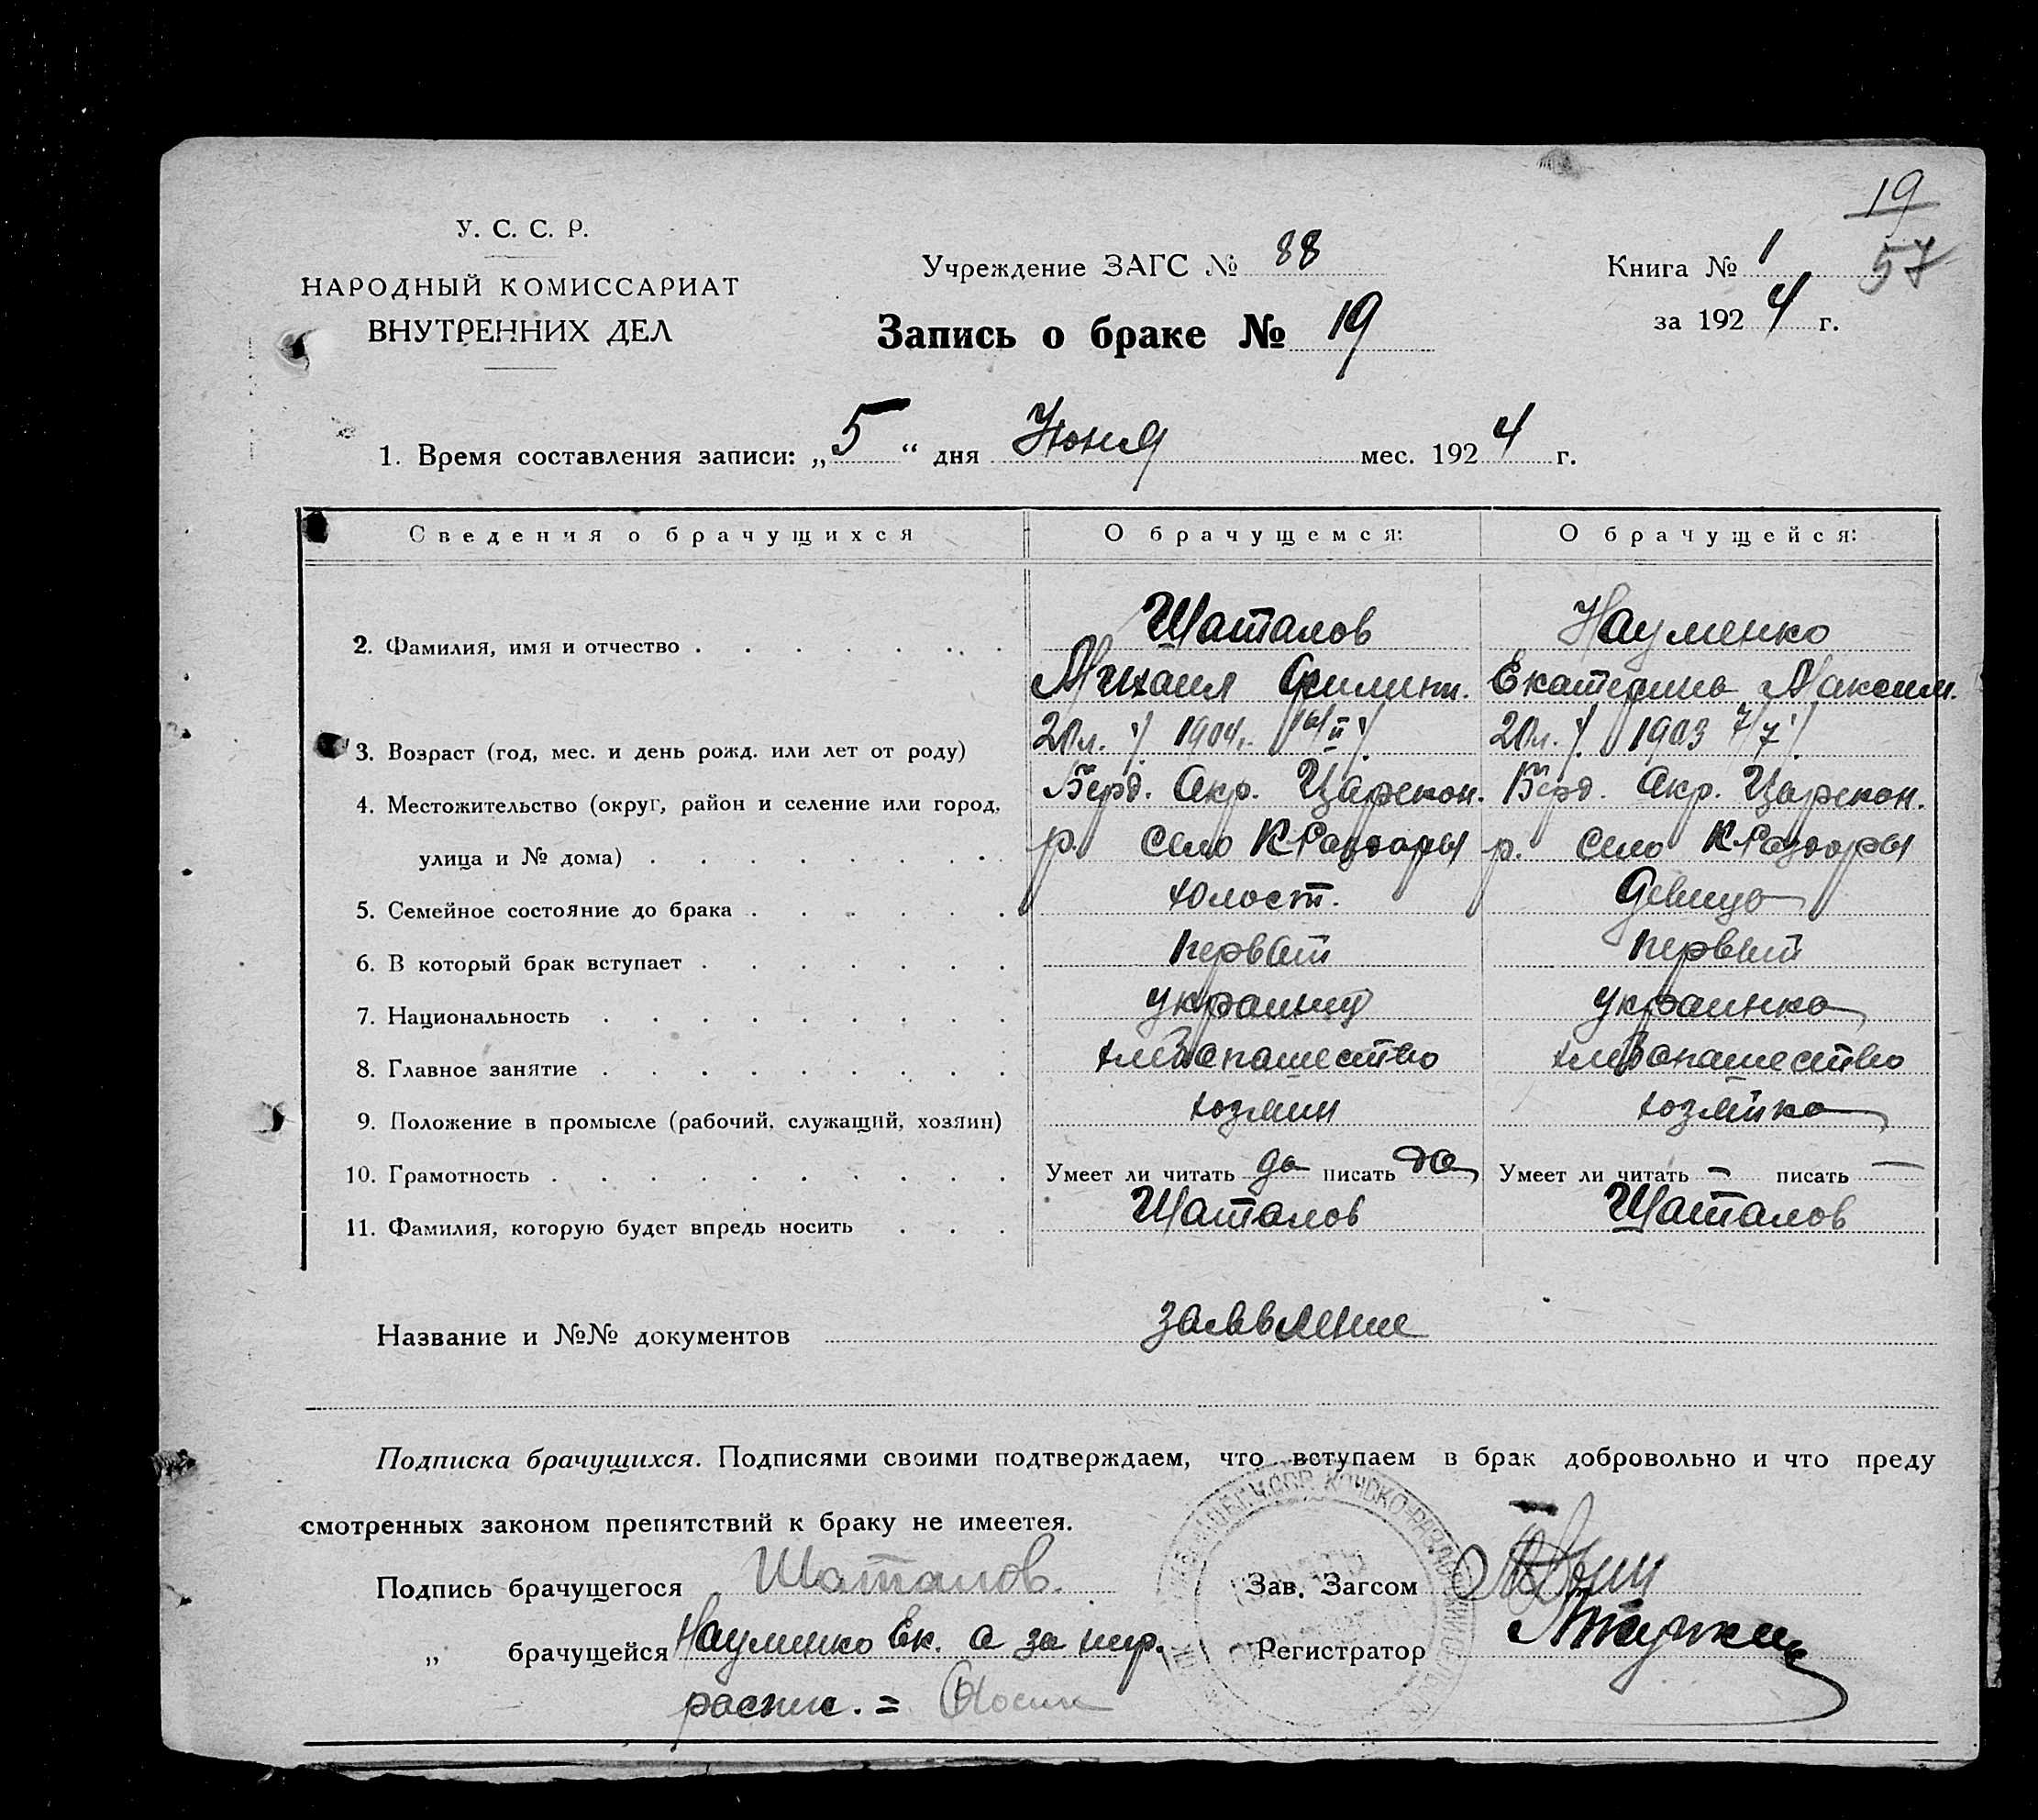 19
57
У. С. С. Р.
НАРОДНЫЙ КОМИССАРИАТ
ВНУТРЕННИХ ДЕЛ
Учреждение ЗАГС № 88
Книга № 1
за 1924 г.
Запись о браке № 19
1. Время составления записи: „5“ дня Июня мес. 1924 г.
Сведения о брачущихся О брачущемся: О брачущейся:
2. Фамилия, имя и отчество Шаталов Науменко
Михаил Филипп. Екатерина Максим.
3. Возраст (год, мес. и день рожд. или лет от роду) 20 л. 1904 20 л. 1903 7/7
4. Местожительство (округ, район и селение или город, Берд. Окр. Царекон. Берд. Окр. Царекон.
улица и № дома) р. село К Раздоры р. село К Раздоры
5. Семейное состояние до брака холост. девица
6. В который брак вступает первый первый
7. Национальность украинец украинка
8. Главное занятие хлебопашество хлебопашество
9. Положение в промысле (рабочий, служащий, хозяин) хозяин хозяйка
10. Грамотность Умеет ли читать да писать да Умеет ли читать — писать —
11. Фамилия, которую будет впредь носить Шаталов Шаталов
Название и №№ документов заявление
Подписка брачущихся. Подписями своими подтверждаем, что вступаем в брак добровольно и что преду
смотренных законом препятствий к браку не имеется.
Подпись брачущегося Шаталов. Зав. Загсом
„ брачущейся Науменко Ек. а за негр. Регистратор
распис. =